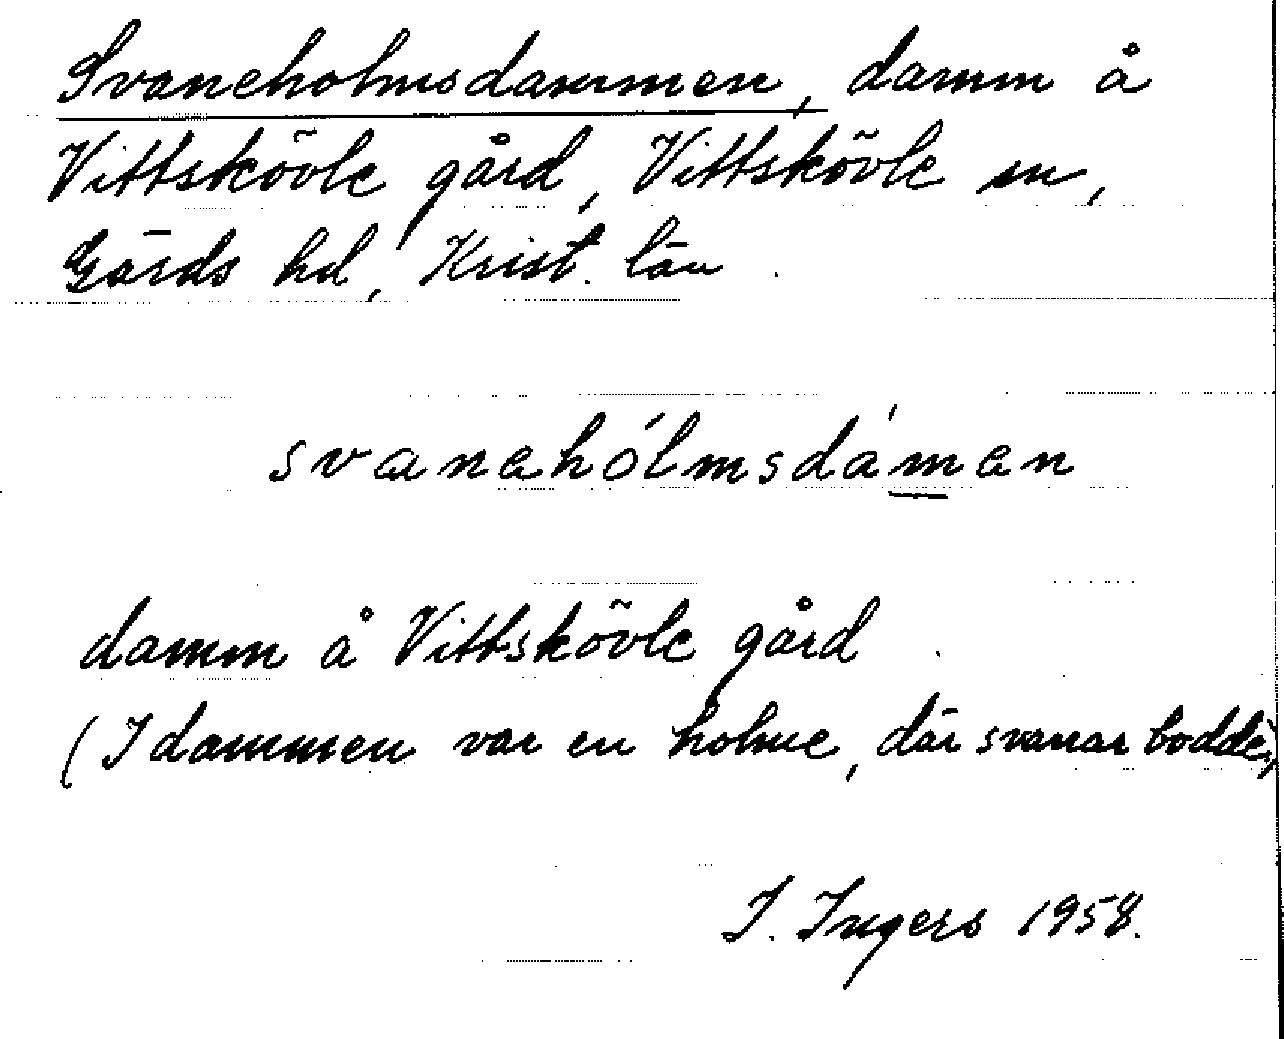 Svaneholmsdammen, damm å
Vittskövle gård, Vittskövle sn,
Gärds hd, Krist. län.
svaneholmsdamen
damm å Vittskövle gård.
(I dammen var en holme, där svanar bodde)
I. Ingers 1958.